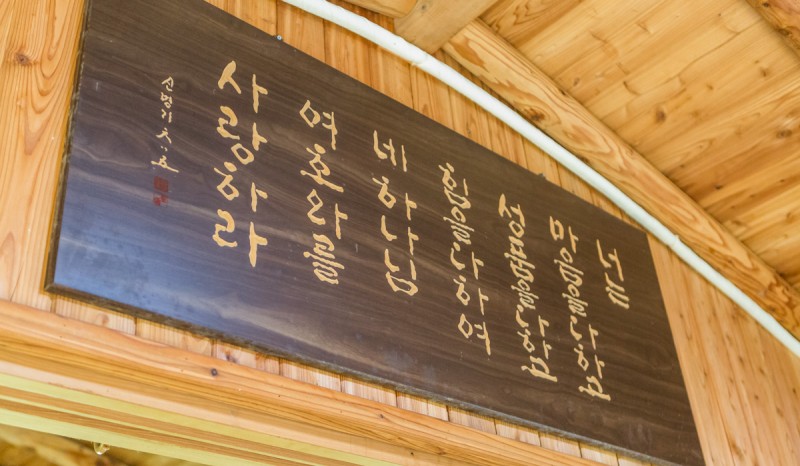 너는
마음을 다하고
성품을 다하고
힘을 다하여
네 하나님
여호와를
사랑하라
신명기 六·五